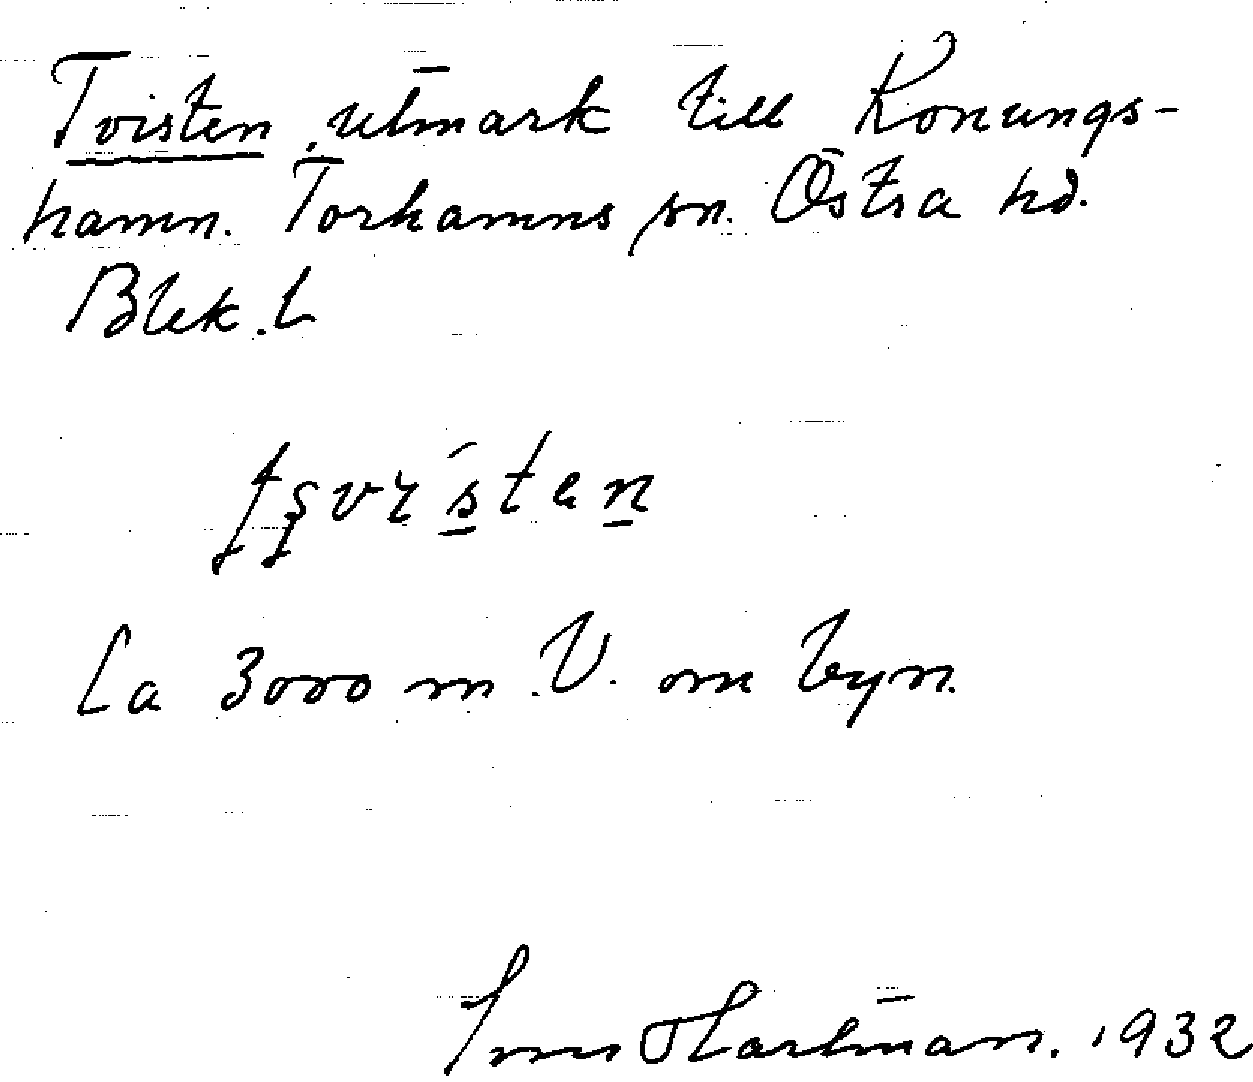 Tvisten, utmark till Konungs-
hamn. Torhamns sn. Östra hd.
Blek. L
Ca 3000 m. V. om byn.
Hartman. 1932